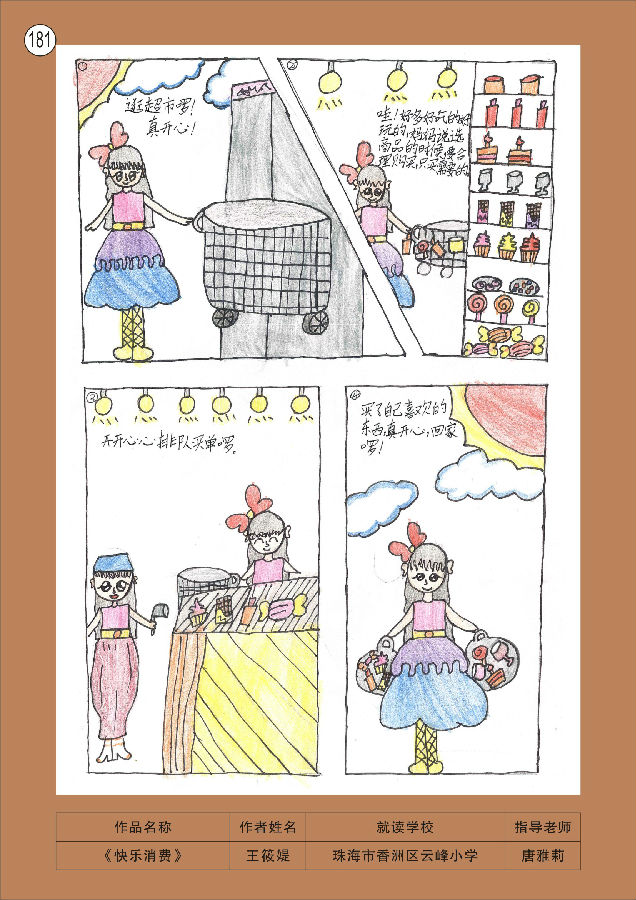 181
①
逛超市啰!
真开心!
②
哇!好多好吃的好
玩的,妈妈说选
商品的时候要合
理购买,只买需要的
③
开开心心排队买单啰。
④
买了自己喜欢的
东西,真开心,回家
啰!
作品名称 作者姓名 就读学校 指导老师
《快乐消费》 王筱媞 珠海市香洲区云峰小学 唐雅莉